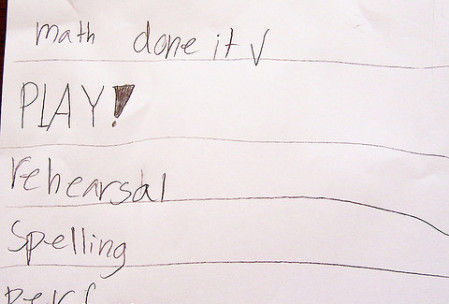 math done it ✓
PLAY!
rehearsal
spelling